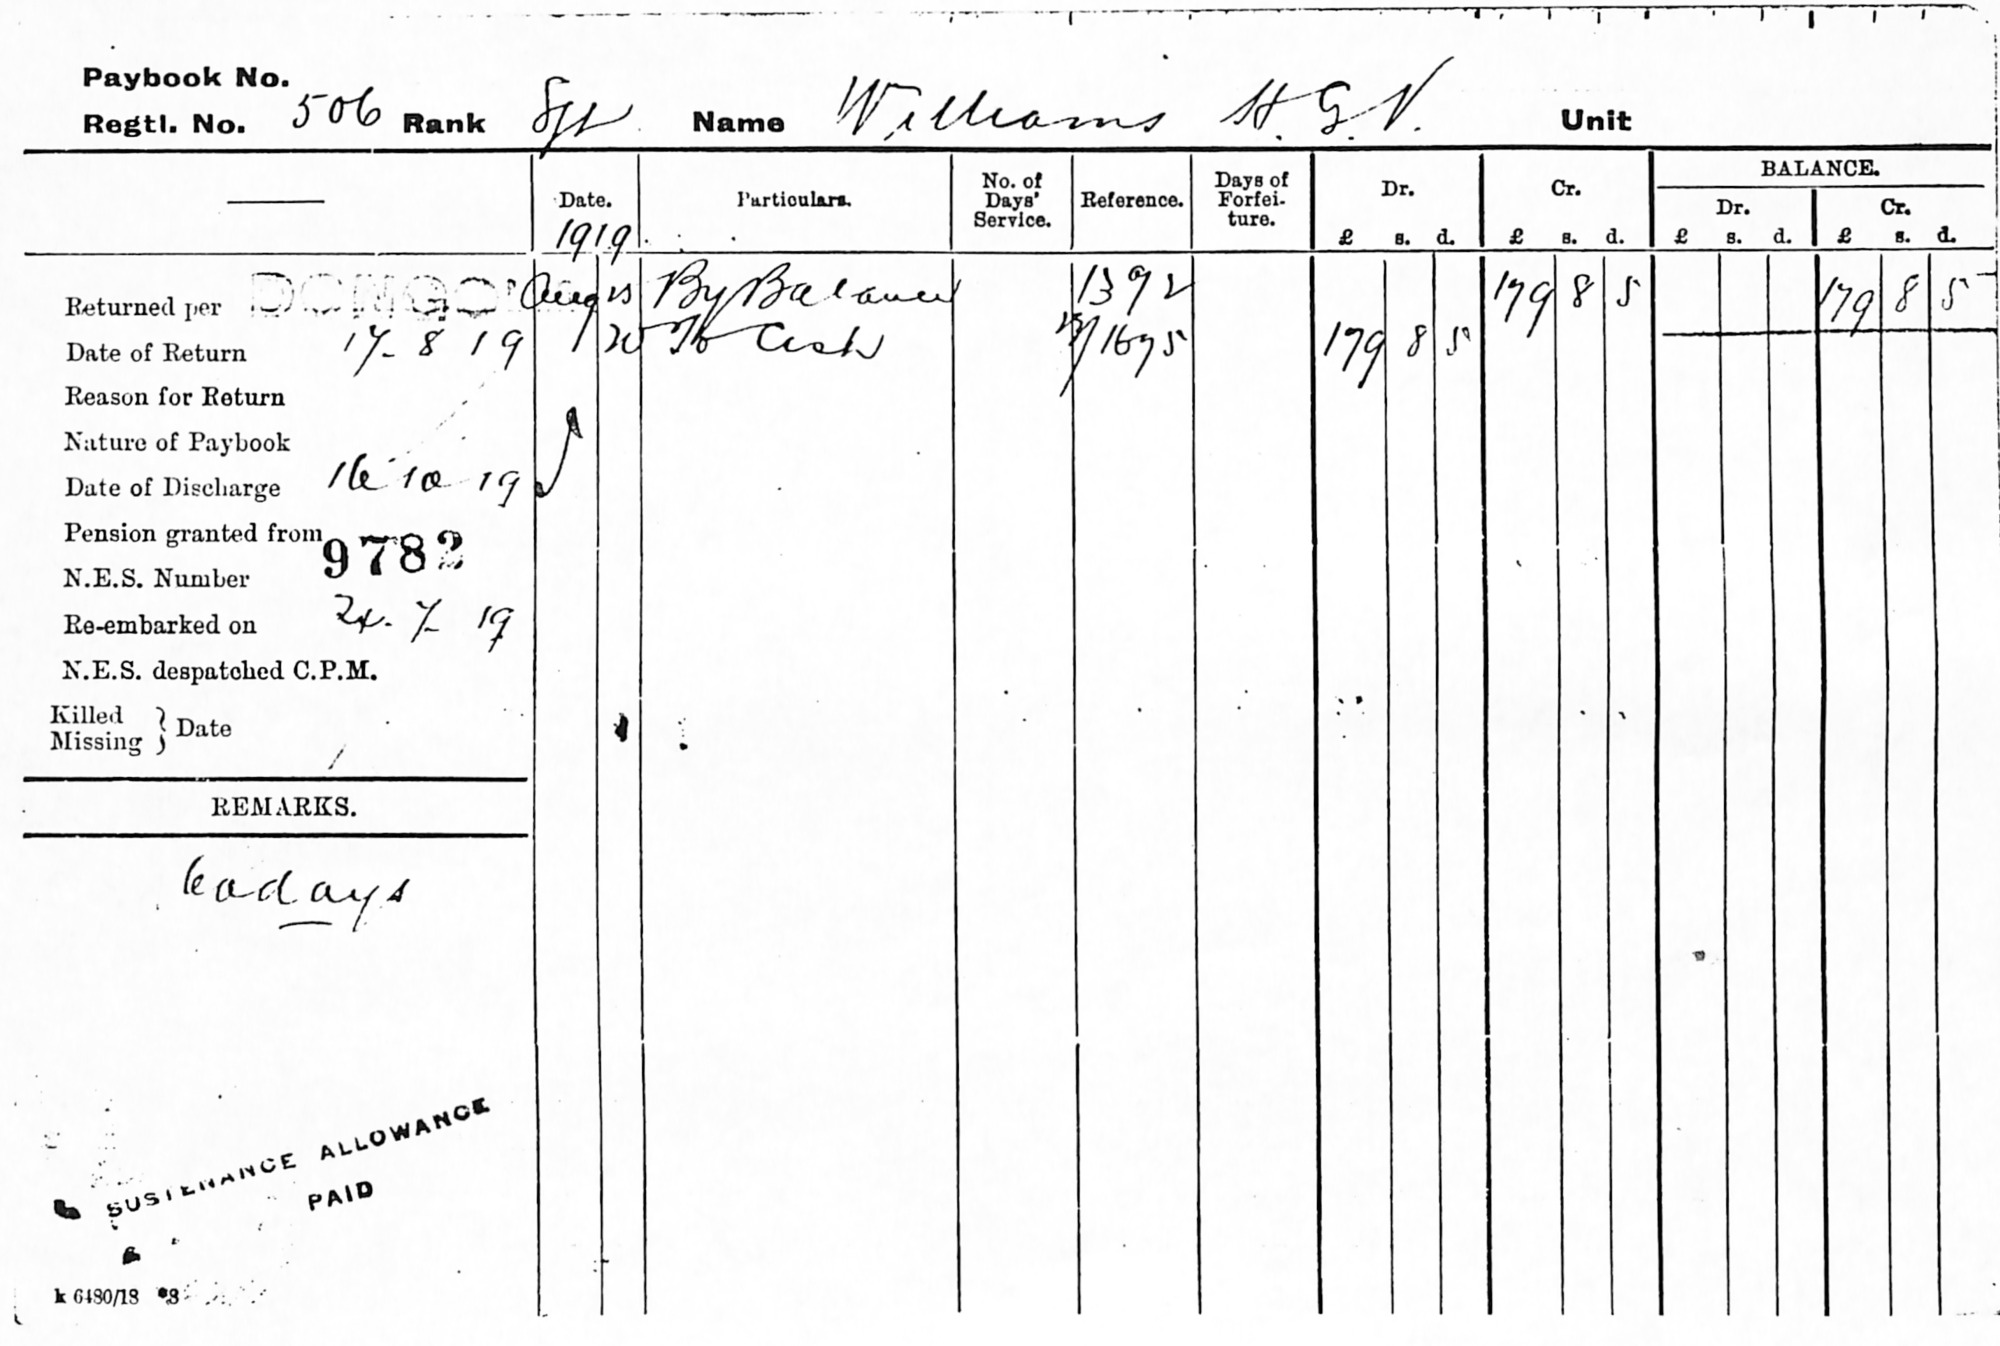 Paybook No.
Regtl. No. 506 Rank Sgt Name Williams H. G. V. Unit
Date. Particulars. No. of Days' Service. Reference. Days of Forfei- ture. Dr. Cr. BALANCE.
Dr. Cr.
1919 £ s. d. £ s. d. £ s. d. £ s. d.
Returned per Aug By Balance 1392 179 8 5 179 8 5
Date of Return 17- 8 19 20 To Cash 1695 179 8 5
Reason for Return
Nature of Paybook
Date of Discharge 16 10 19
Pension granted from
N.E.S. Number 9782
Re-embarked on 24. 7 19
N.E.S. despatched C.P.M.
Killed
Missing } Date
REMARKS.
60 days
SUSTENANCE ALLOWANCE
PAID
k 6480/18